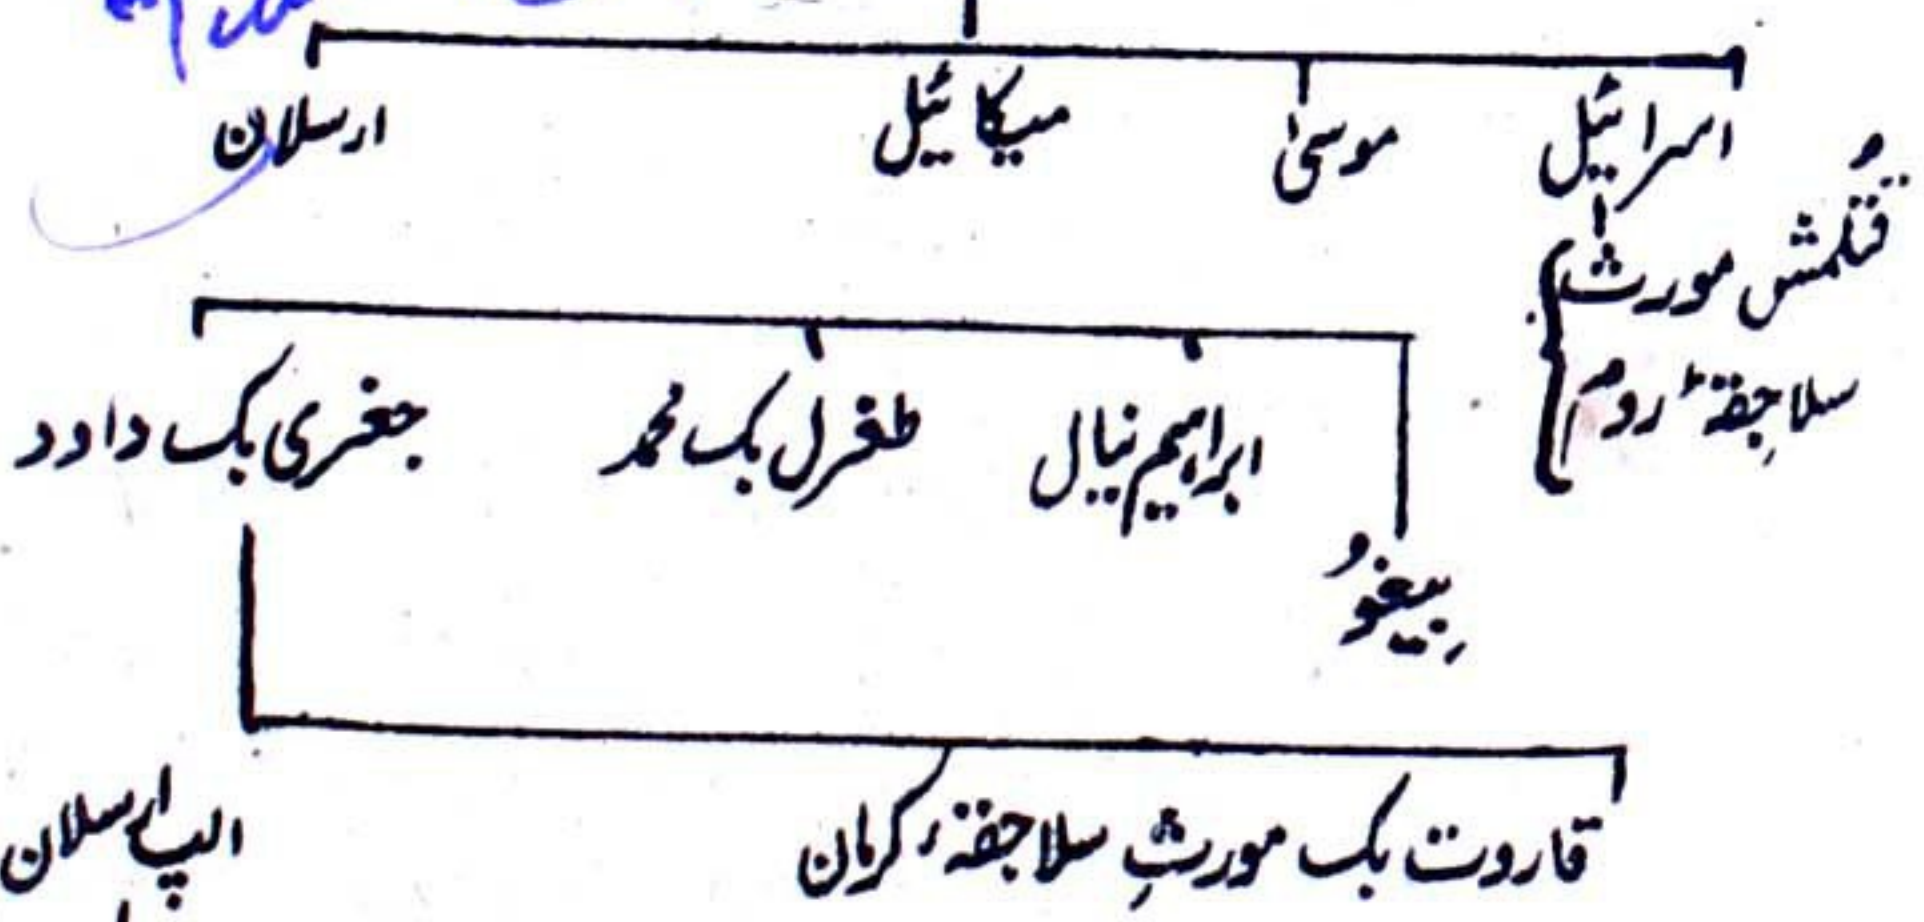 اسرائیل موسیٰ میکائیل ارسلان
قُتُلمش مورث
سلاجِقۂ روم
ابراہیم نیال طغرل بک محمد جغری بک داود
بِیغُو
قاروت بک مورثِ سلاجقۂ کرمان الپ ارسلان